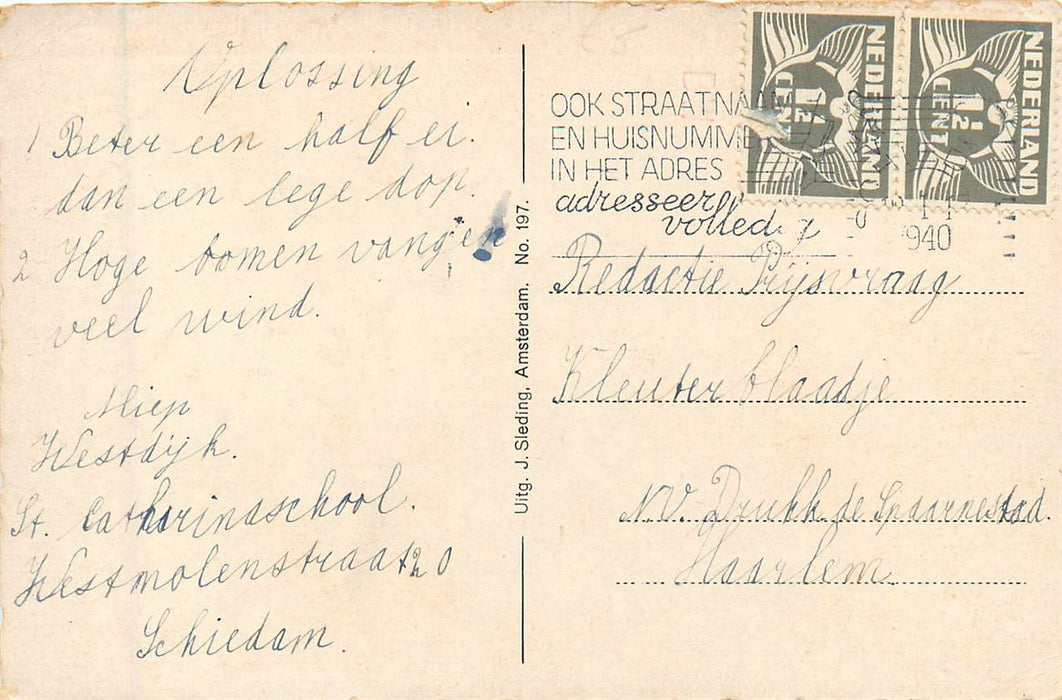 Oplossing
1 Beter een half ei.
dan een lege dop.
2 Hoge bomen vangen
veel wind.
Miep
Westdijk.
St. Catharinaschool.
Westmolenstraat 20
Schiedam.
Uitg. J. Sleding, Amsterdam. No. 197.
OOK STRAATNAA
EN HUISNUMME
IN HET ADRES
adresseer
volledig
NEDERLAND
1½
CENT
NEDERLAND
1½
CENT
1940
Redactie Prijsvraag
Kleuterblaadje
N.V. Drukk. de Spaarnestad.
Haarlem